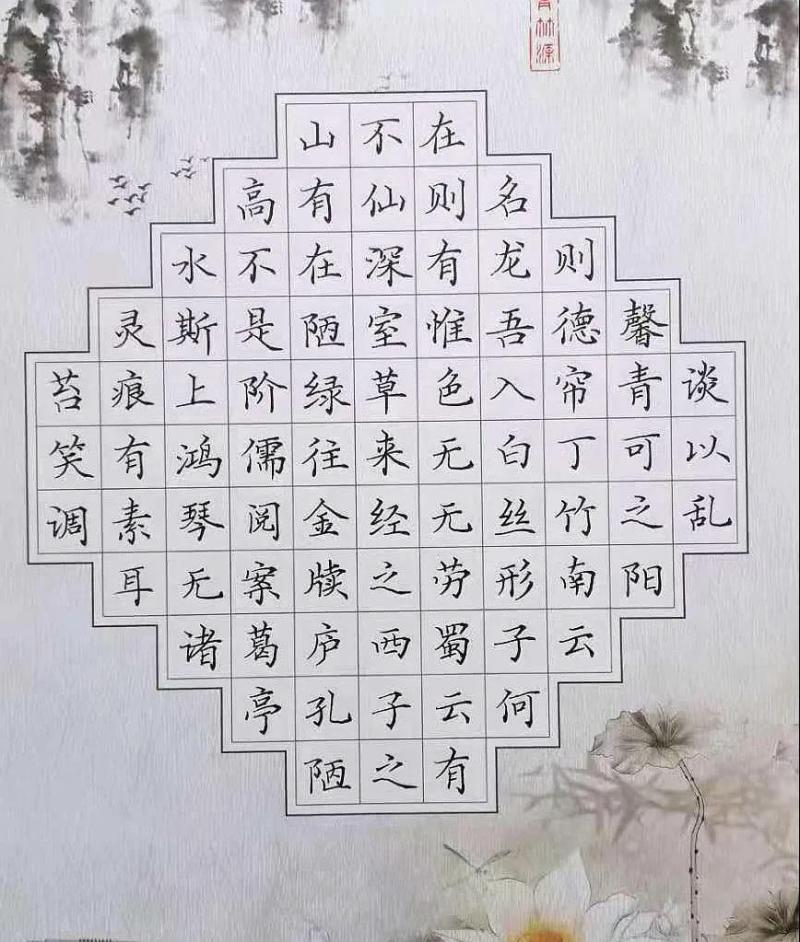 林源
山不在
高有仙则名
水不在深有龙则
灵斯是陋室惟吾德馨
苔痕上阶绿草色入帘青谈
笑有鸿儒往来无白丁可以
调素琴阅金经无丝竹之乱
耳无案牍之劳形南阳
诸葛庐西蜀子云
亭孔子云何
陋之有